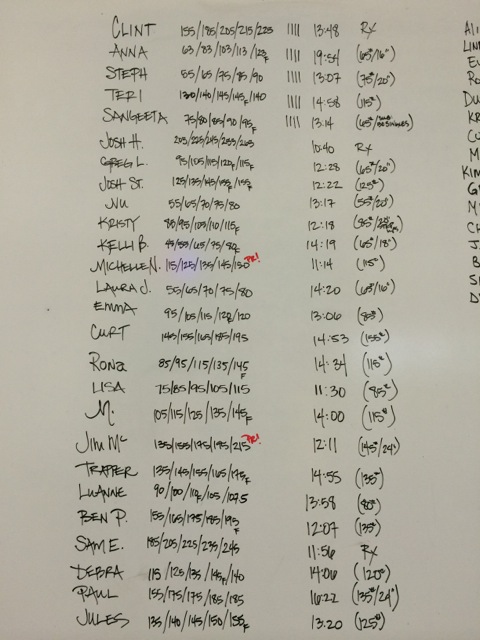 CLINT 155/185/205/215/225 |||| 13:48 RX
ANNA 63/83/103/113/123F |||| 19:54 (65#/16")
STEPH 55/65/75/85/90 |||| 13:07 (75#/20")
TERI 130/140/145/145F/140 |||| 14:58 (115#)
SANGEETA 75/80/85/90/95F |||| 13:14 (65#/
JOSH H. 205/225/245/255/265 10:40 RX
GREG L. 95/105/115/120F/115F 12:28 (65#/20")
JOSH ST. 125/135/145/155F/155F 12:22 (125#)
NU 55/65/70/75/80 13:17 (55#/20")
KRISTY 85/95/105/110/115F 12:18 (85#/
KELLI B. 45/55/65/75/80F 14:19 (65#/18")
MICHELLE N. 115/125/135/145/150 PR! 11:14 (115#)
LAURA J. 55/65/70/75/80 14:20 (65#/16")
EMMA 95/105/115/120/120 13:06 (85#)
CURT 145/155/165/185/195 14:53 (155#)
RONA 85/95/115/135/145F 14:34 (115#)
LISA 75/85/95/105/115 11:30 (85#)
M. 105/115/125/135/145F 14:00 (115#)
JIM MC 135/155/175/195/215 PR! 12:11 (145#/24")
TRAPPER 135/145/155/165/175F 14:55 (135#)
LUANNE 90/100/110F/105/107.5 13:58 (80#)
BEN P. 155/165/175/185/195F 12:07 (135#)
SAM E. 185/205/225/235/245 11:56 RX
DEBRA 115/125/135/145F/140 14:06 (120#)
PAUL 155/175/175/185/185 16:22 (135#/24")
JULES 135/140/145/150/155F 13:20 (125#)